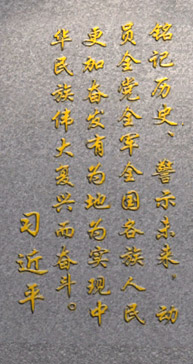 铭记历史、警示未来。动
员全党全军全国各族人民
更加奋发有为地为实现中
华民族伟大复兴而奋斗。
习近平